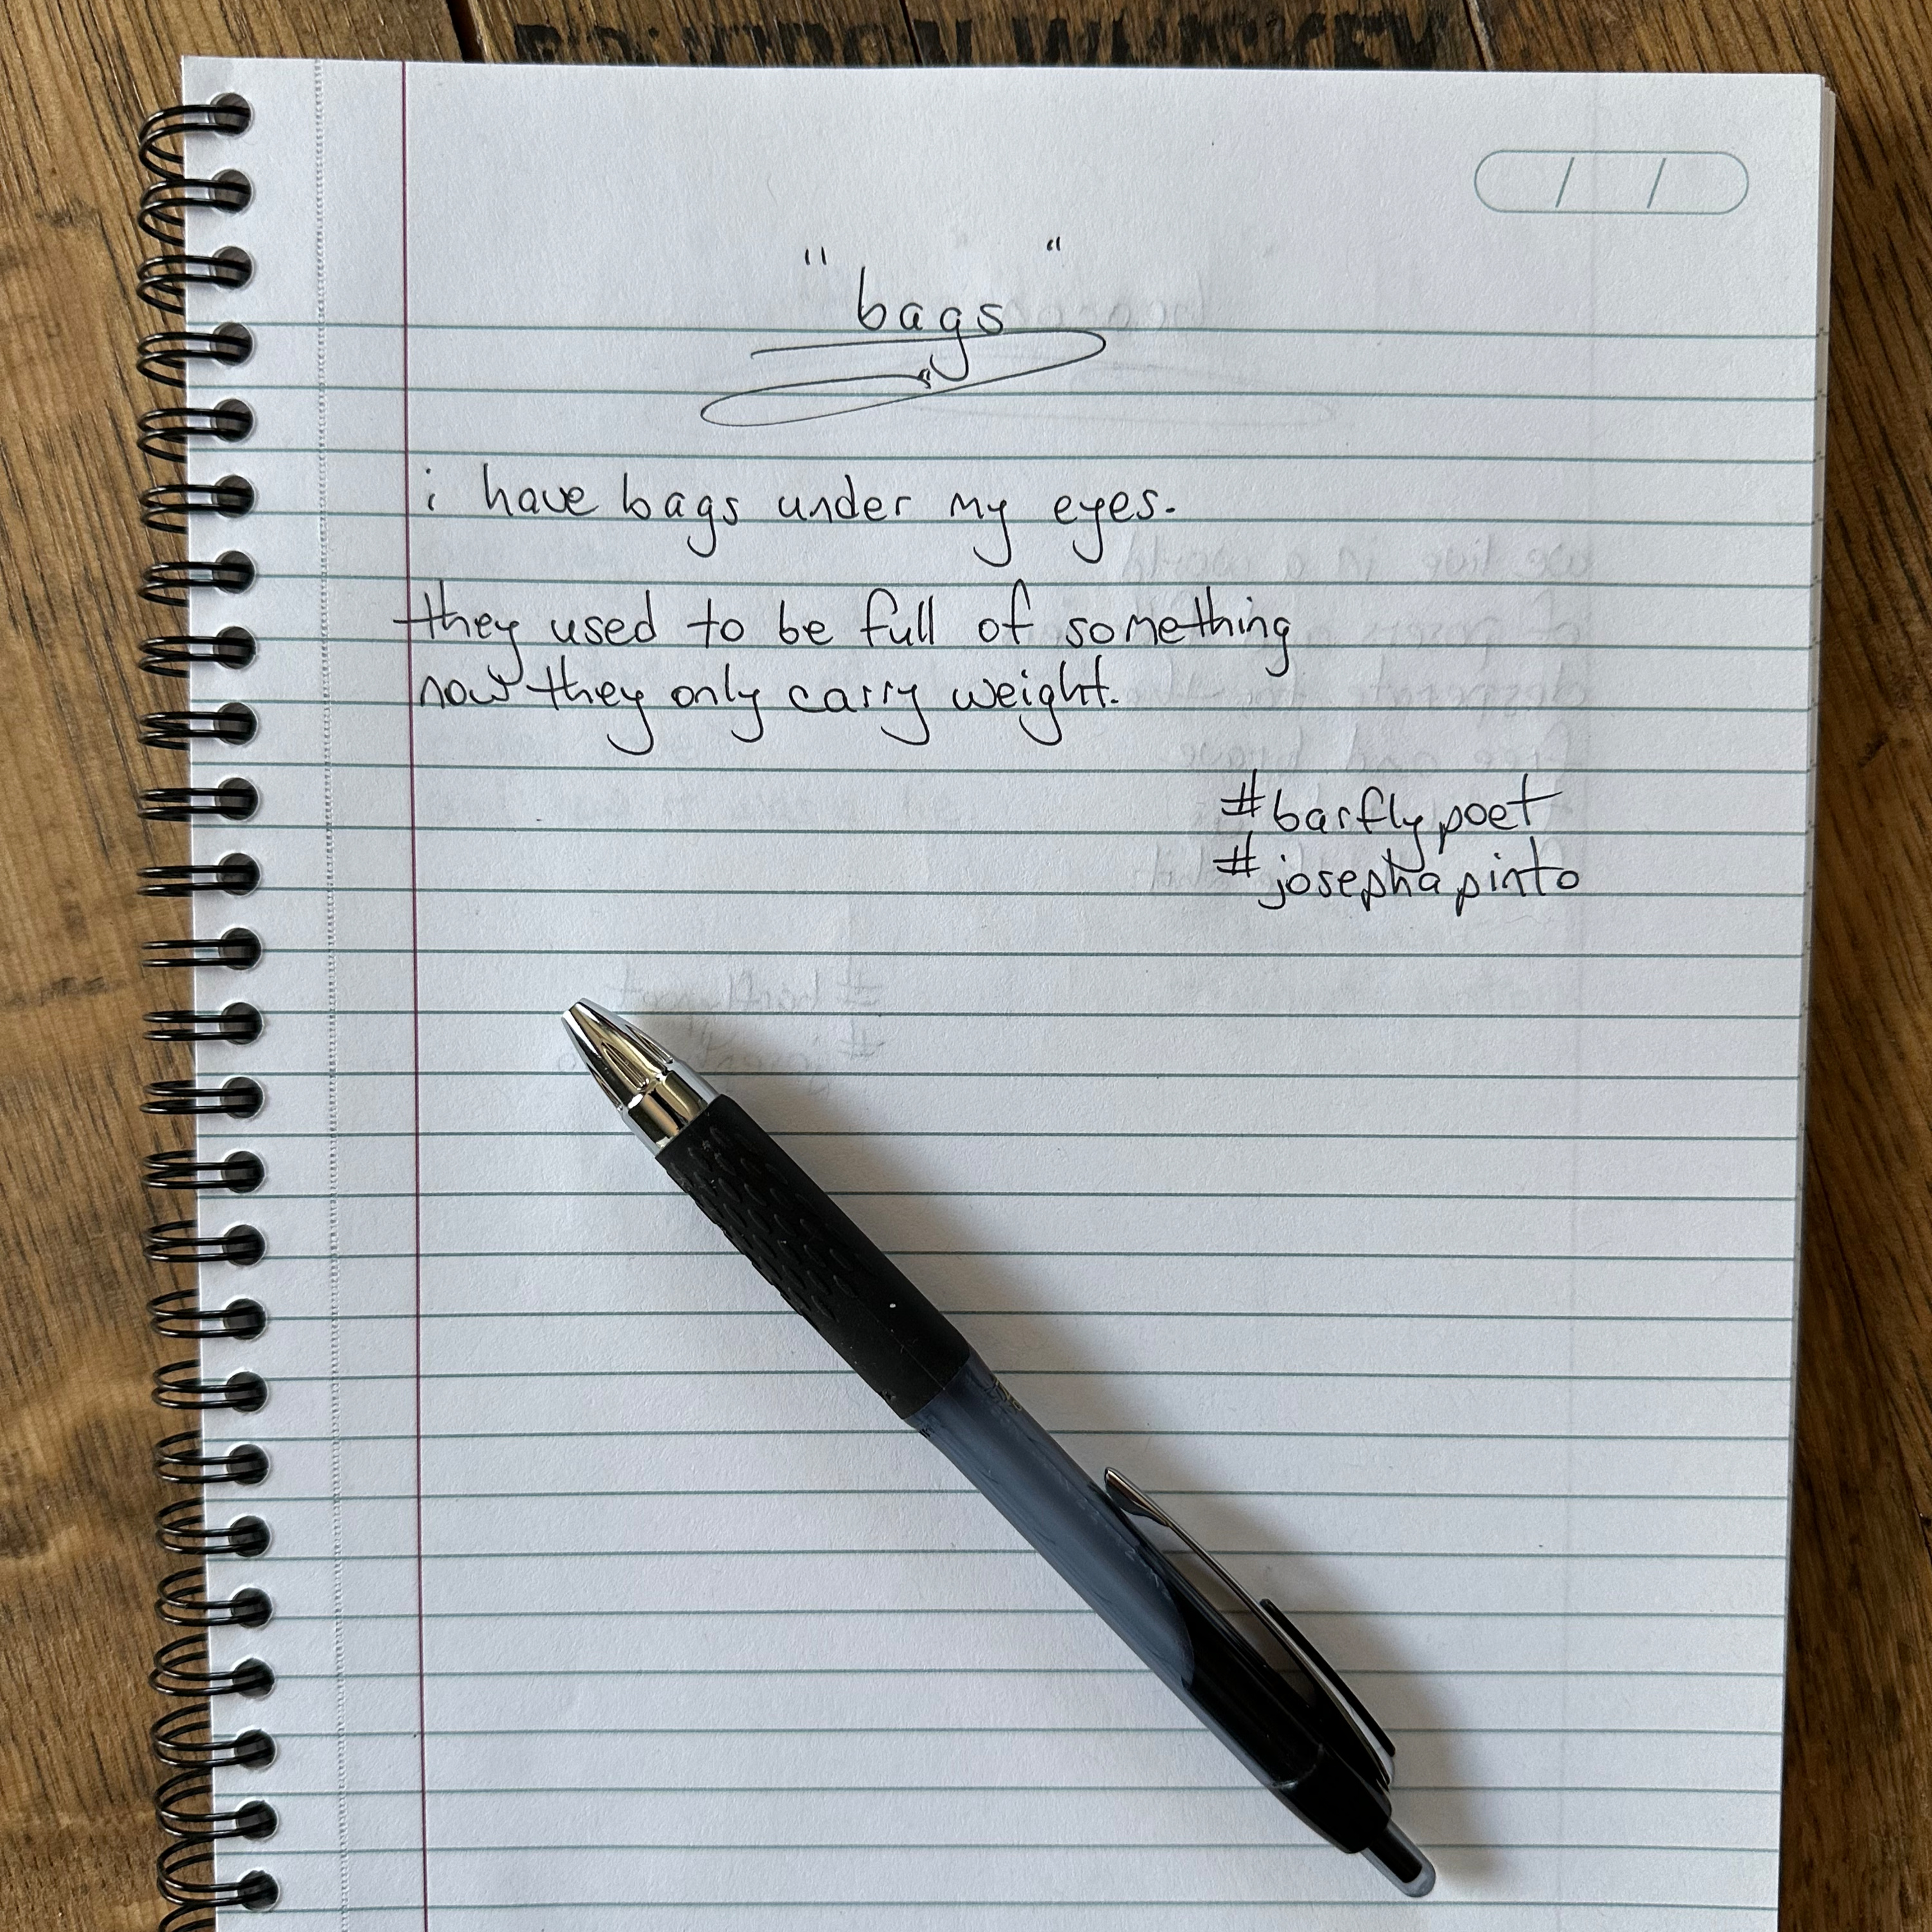 BOURBON WHISKEY
"bags"
i have bags under my eyes.
they used to be full of something
now they only carry weight.
#barflypoet
#josephapinto